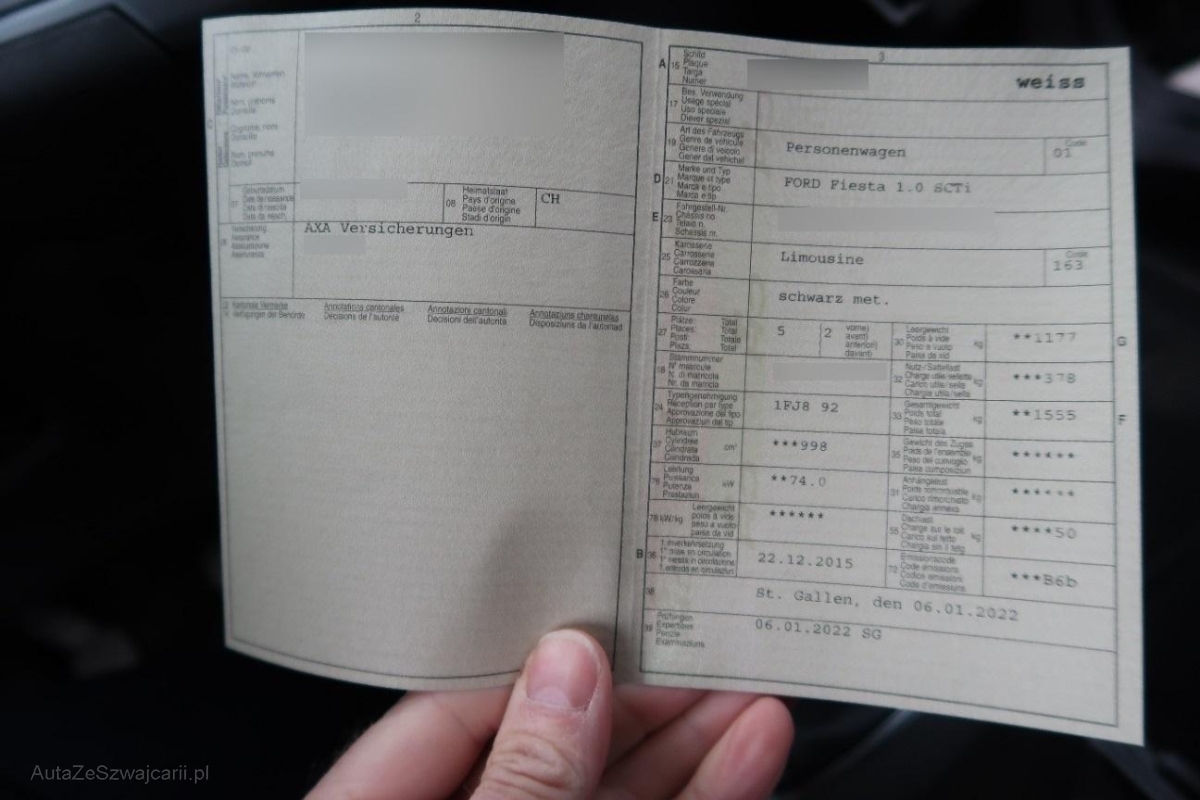 2
Name, Vornamen
Nom, prénoms
Domicile
Cognome, nomi
Domicilio
Num, prenums
Domicil
07
Geburtsdatum
Date de naissance
Data di nascita
Data da nasch.
08
Heimatstaat
Pays d'origine
Paese d'origine
Stadi d'origin
CH
Versicherung
Assurance
Assicurazione
AXA Versicherungen
Kantonale Vermerke
Verfügungen der Behörde
Annotations cantonales
Décisions de l'autorité
Annotazioni cantonali
Decisioni dell'autorità
Annotaziuns chantunalas
Disposiziuns da l'autoritad
3
A 15
Schild
Plaque
Targa
Numer
weiss
17
Bes. Verwendung
Usage spécial
Uso speciale
Diever spezial
19
Art des Fahrzeugs
Genre de véhicule
Genere di veicolo
Gener dal vehichel
Personenwagen
Code
01
D 21
Marke und Typ
Marque et type
Marca e tipo
Marca e tip
FORD Fiesta 1.0 SCTi
E 23
Fahrgestell-Nr.
Châssis no
Telaio n.
Schassis nr.
25
Karosserie
Carrosserie
Carrozzeria
Carossaria
Limousine
Code
163
26
Farbe
Couleur
Colore
Colur
schwarz met.
27
Plätze: Total
Places: Total
Posti: Totale
Plazs: Total
5
(2
vorne)
avant)
anteriori)
davant)
30
Leergewicht
Poids à vide
Peso a vuoto
Paisa da vid
kg
**1177
G
18
Stammnummer
N° matricule
N. di matricola
Nr. da matricla
32
Nutz-/Sattellast
Charge utile/sellette
Carico utile/sella
Chargia utila/sella
kg
***378
24
Typengenehmigung
Réception par type
Approvazione del tipo
Approvaziun dal tip
1FJ8 92
33
Gesamtgewicht
Poids total
Peso totale
Paisa totala
kg
**1555
F
37
Hubraum
Cylindrée
Cilindrata
Cilindrada
cm³
***998
35
Gewicht des Zuges
Poids de l'ensemble
Peso del convoglio
Paisa cumposiziun
kg
******
76
Leistung
Puissance
Potenza
Prestaziun
kW
**74.0
31
Anhängelast
Poids remorquable
Carico rimorchiato
Chargia annexa
kg
******
78 kW/kg
Leergewicht
poids à vide
peso a vuoto
paisa da vid
******
55
Dachlast
Charge sur le toit
Carico sul tetto
Chargia sin il tetg
kg
****50
B 36
1. Inverkehrsetzung
1re mise en circulation
1a messa in circolazione
1. entrada en circulaziun
22.12.2015
72
Emissionscode
Code émissions
Codice emissioni
Code d'emissiuns
***B6b
38
St. Gallen, den 06.01.2022
39
Prüfungen
Expertises
Perizie
Examinaziuns
06.01.2022 SG
AutaZeSzwajcarii.pl